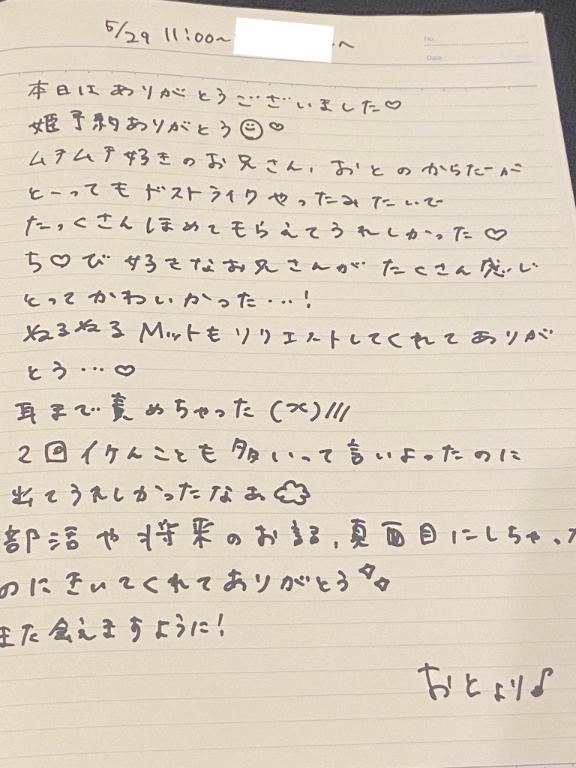 5/29 11:00〜 へ
No.
Date
本日はありがとうございました♡
姫予約ありがとう☺♡
ムチムチ好きのお兄さん、おとのからだが
とーってもドストライクやったみたいで
たっくさんほめてもらえてうれしかった♡
ち♡び好きなお兄さんがたくさん感じ
とってかわいかった…!
ぬるぬるMットもリクエストしてくれてありが
とう…♡
耳まで責めちゃった(x)///
2回イケんことも多いって言いよったのに
出てうれしかったなぁ
部活や将来のお話、真面目にしちゃった
のにきいてくれてありがとう
また会えますように!
おとより♪